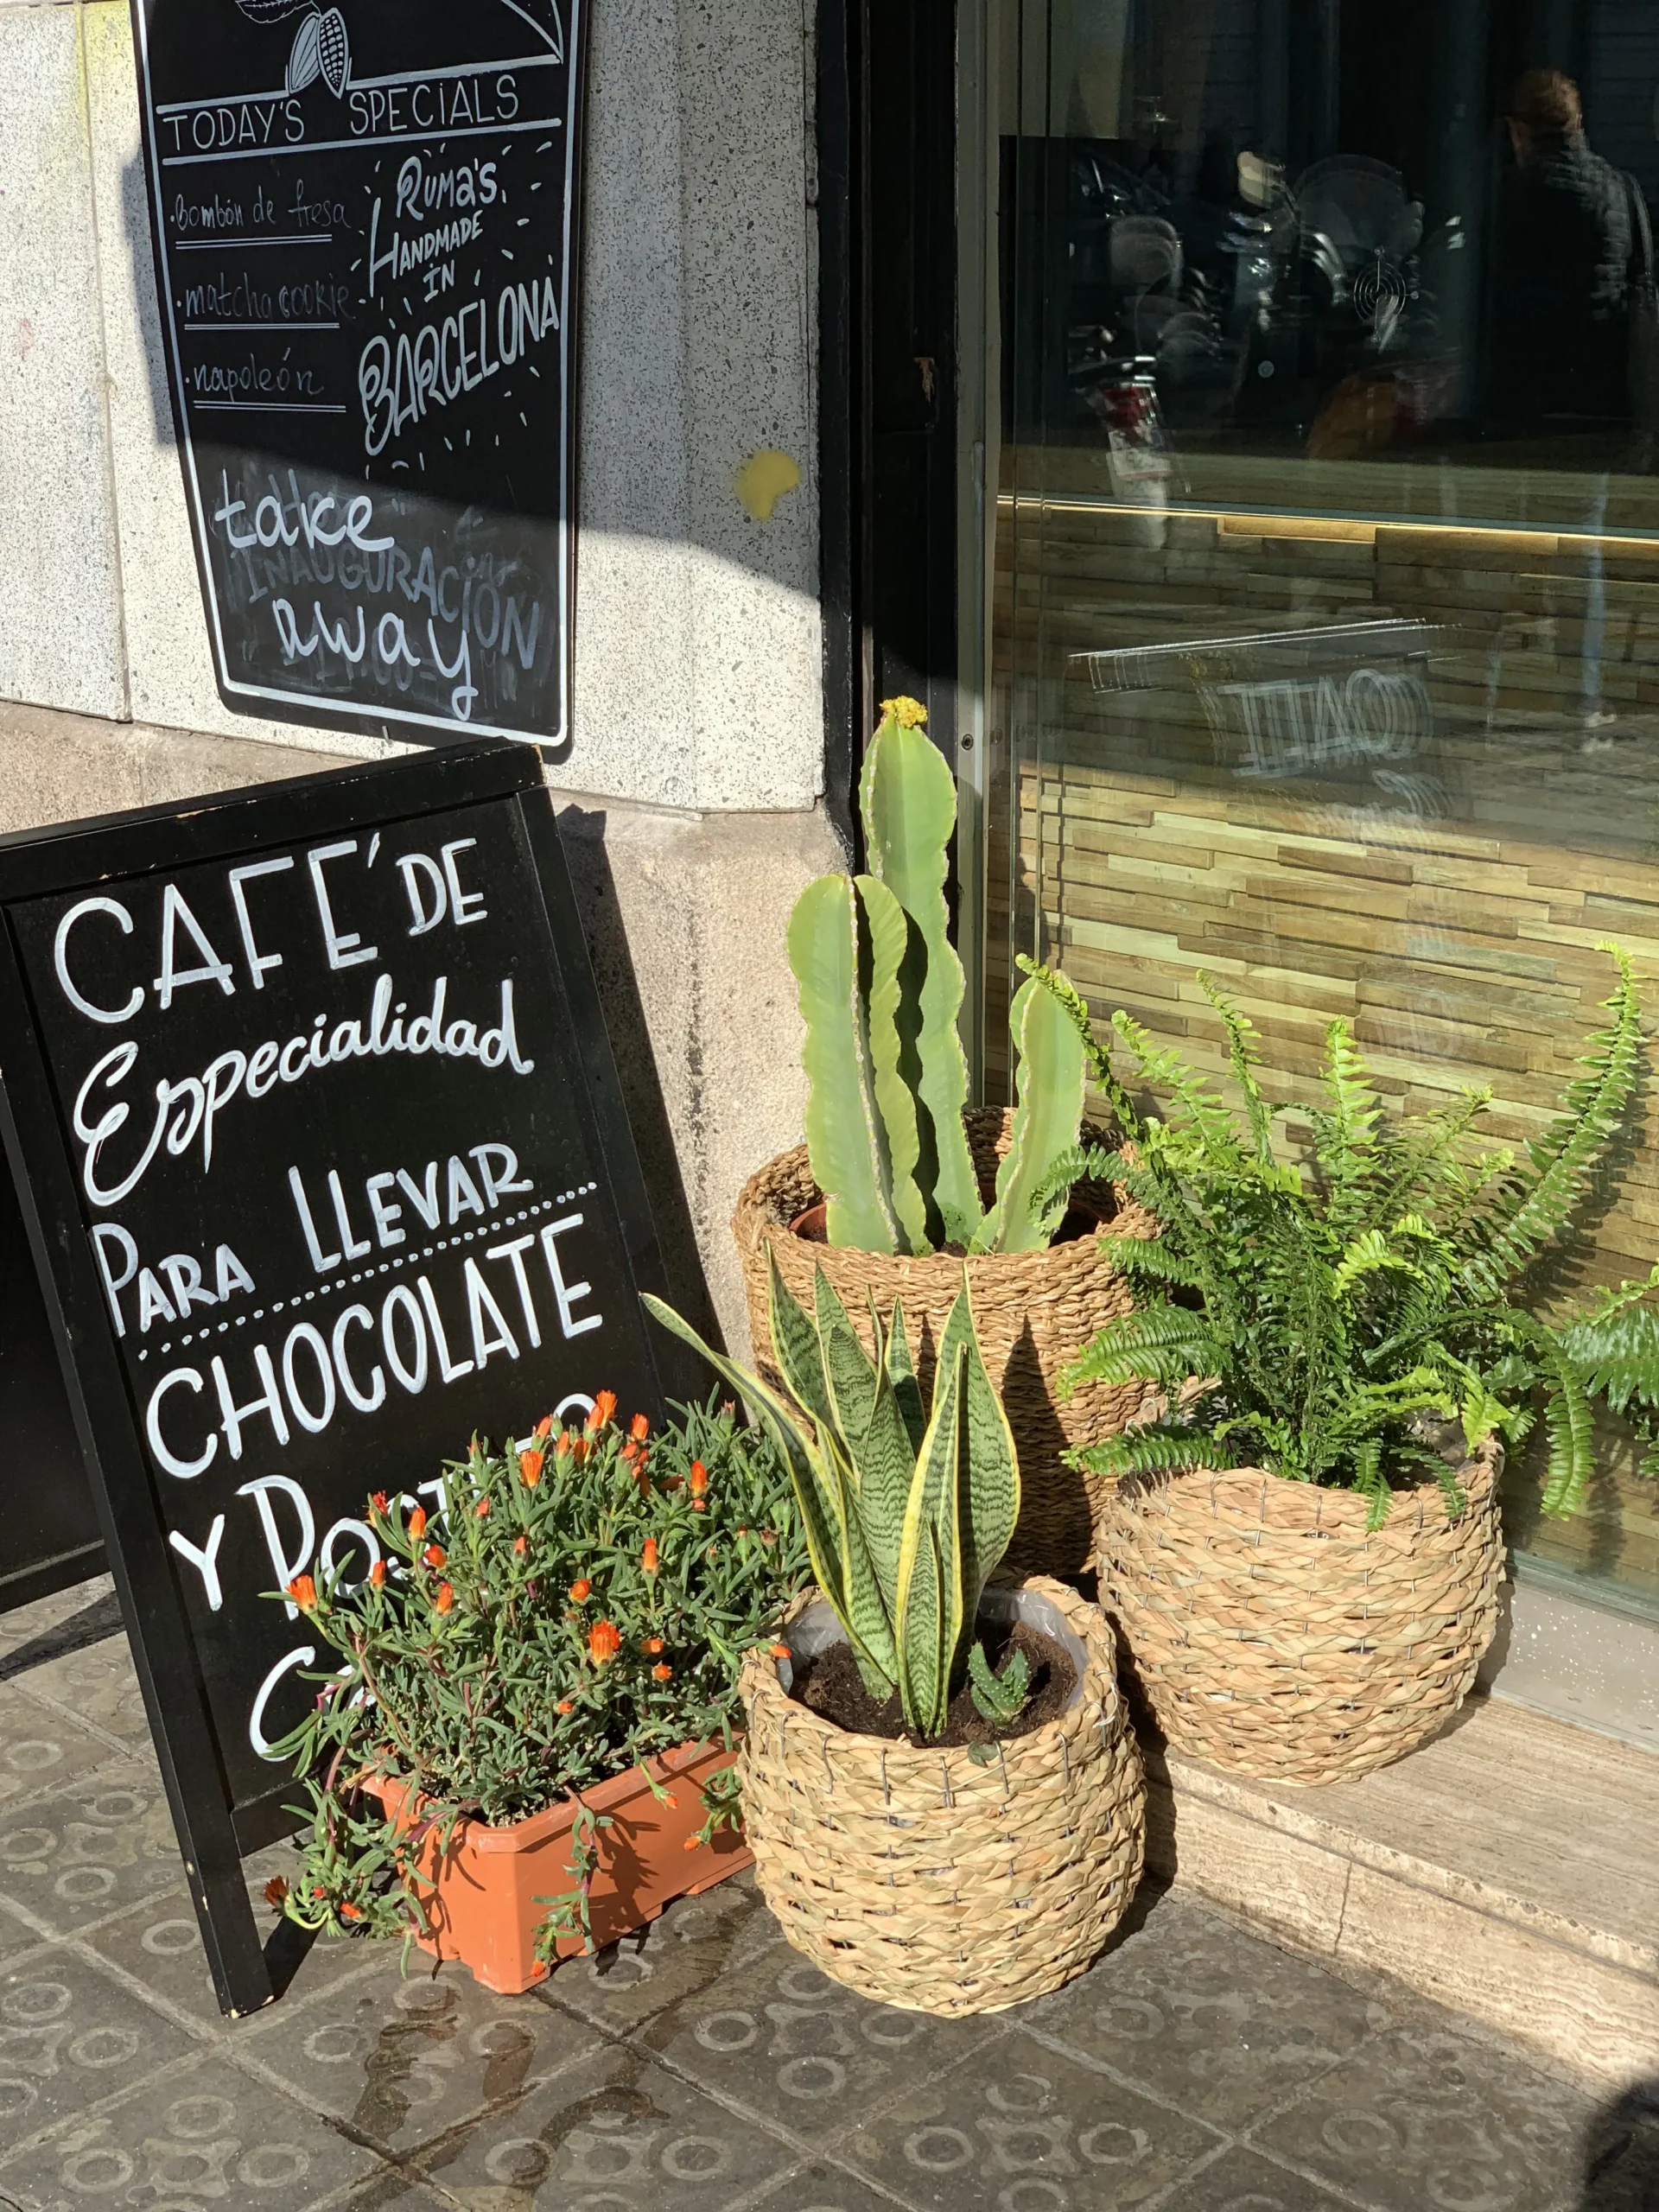 TODAY'S SPECIALS
·Bombón de fresa
·matcha cookie
·napoleón
RUMA'S
HANDMADE
IN
BARCELONA
take
INAUGURACIÓN
away
CAFÉ DE
Especialidad
PARA LLEVAR
CHOCOLATE
Y